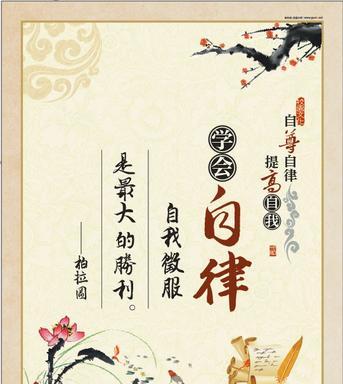 自尊自律
提高自我
学会自律
自我徵服
是最大的勝利。
——柏拉圖